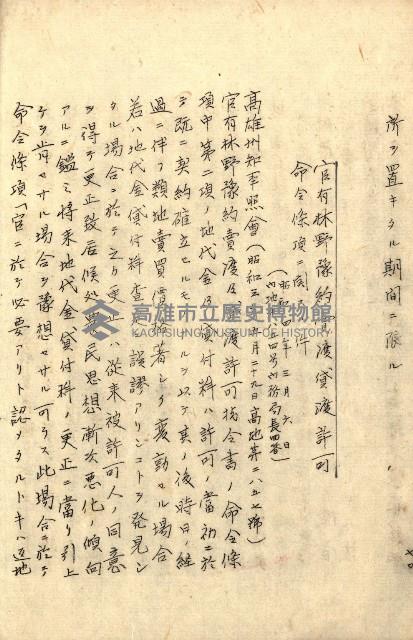 所ヲ置キタル期間ニ限ル
官有林野豫約賣渡貸渡許可
命令條項ニ関スル件
高雄州知事照會
官有林野豫約賣渡及貸渡許可指令書ノ命令條
項中第二項ノ地代金及貸付料ハ許可ノ當初ニ於
テ既ニ契約確立セルモノナルヲ以テ其ノ後時日ノ經
過ニ伴フ類地賣買價格著シク変動セル場合
若ハ地代金貸付料査定ニ誤謬アリシコトヲ発見シ
タル場合ニ於テ之カ変更ハ従来被許可人ノ同意
ヲ得テ更正致居候処島民思想漸次悪化ノ傾向
アルニ鑑ミ将来地代金貸付料ノ更正ニ當リ引上
ケヲ肯セサル場合ヲ豫想セサル可ラス此場合ニ於テ
命令條項「官ニ於テ必要アリト認メタルトキハ返地
高雄市立歷史博物館
KAOHSIUNG MUSEUM OF HISTORY